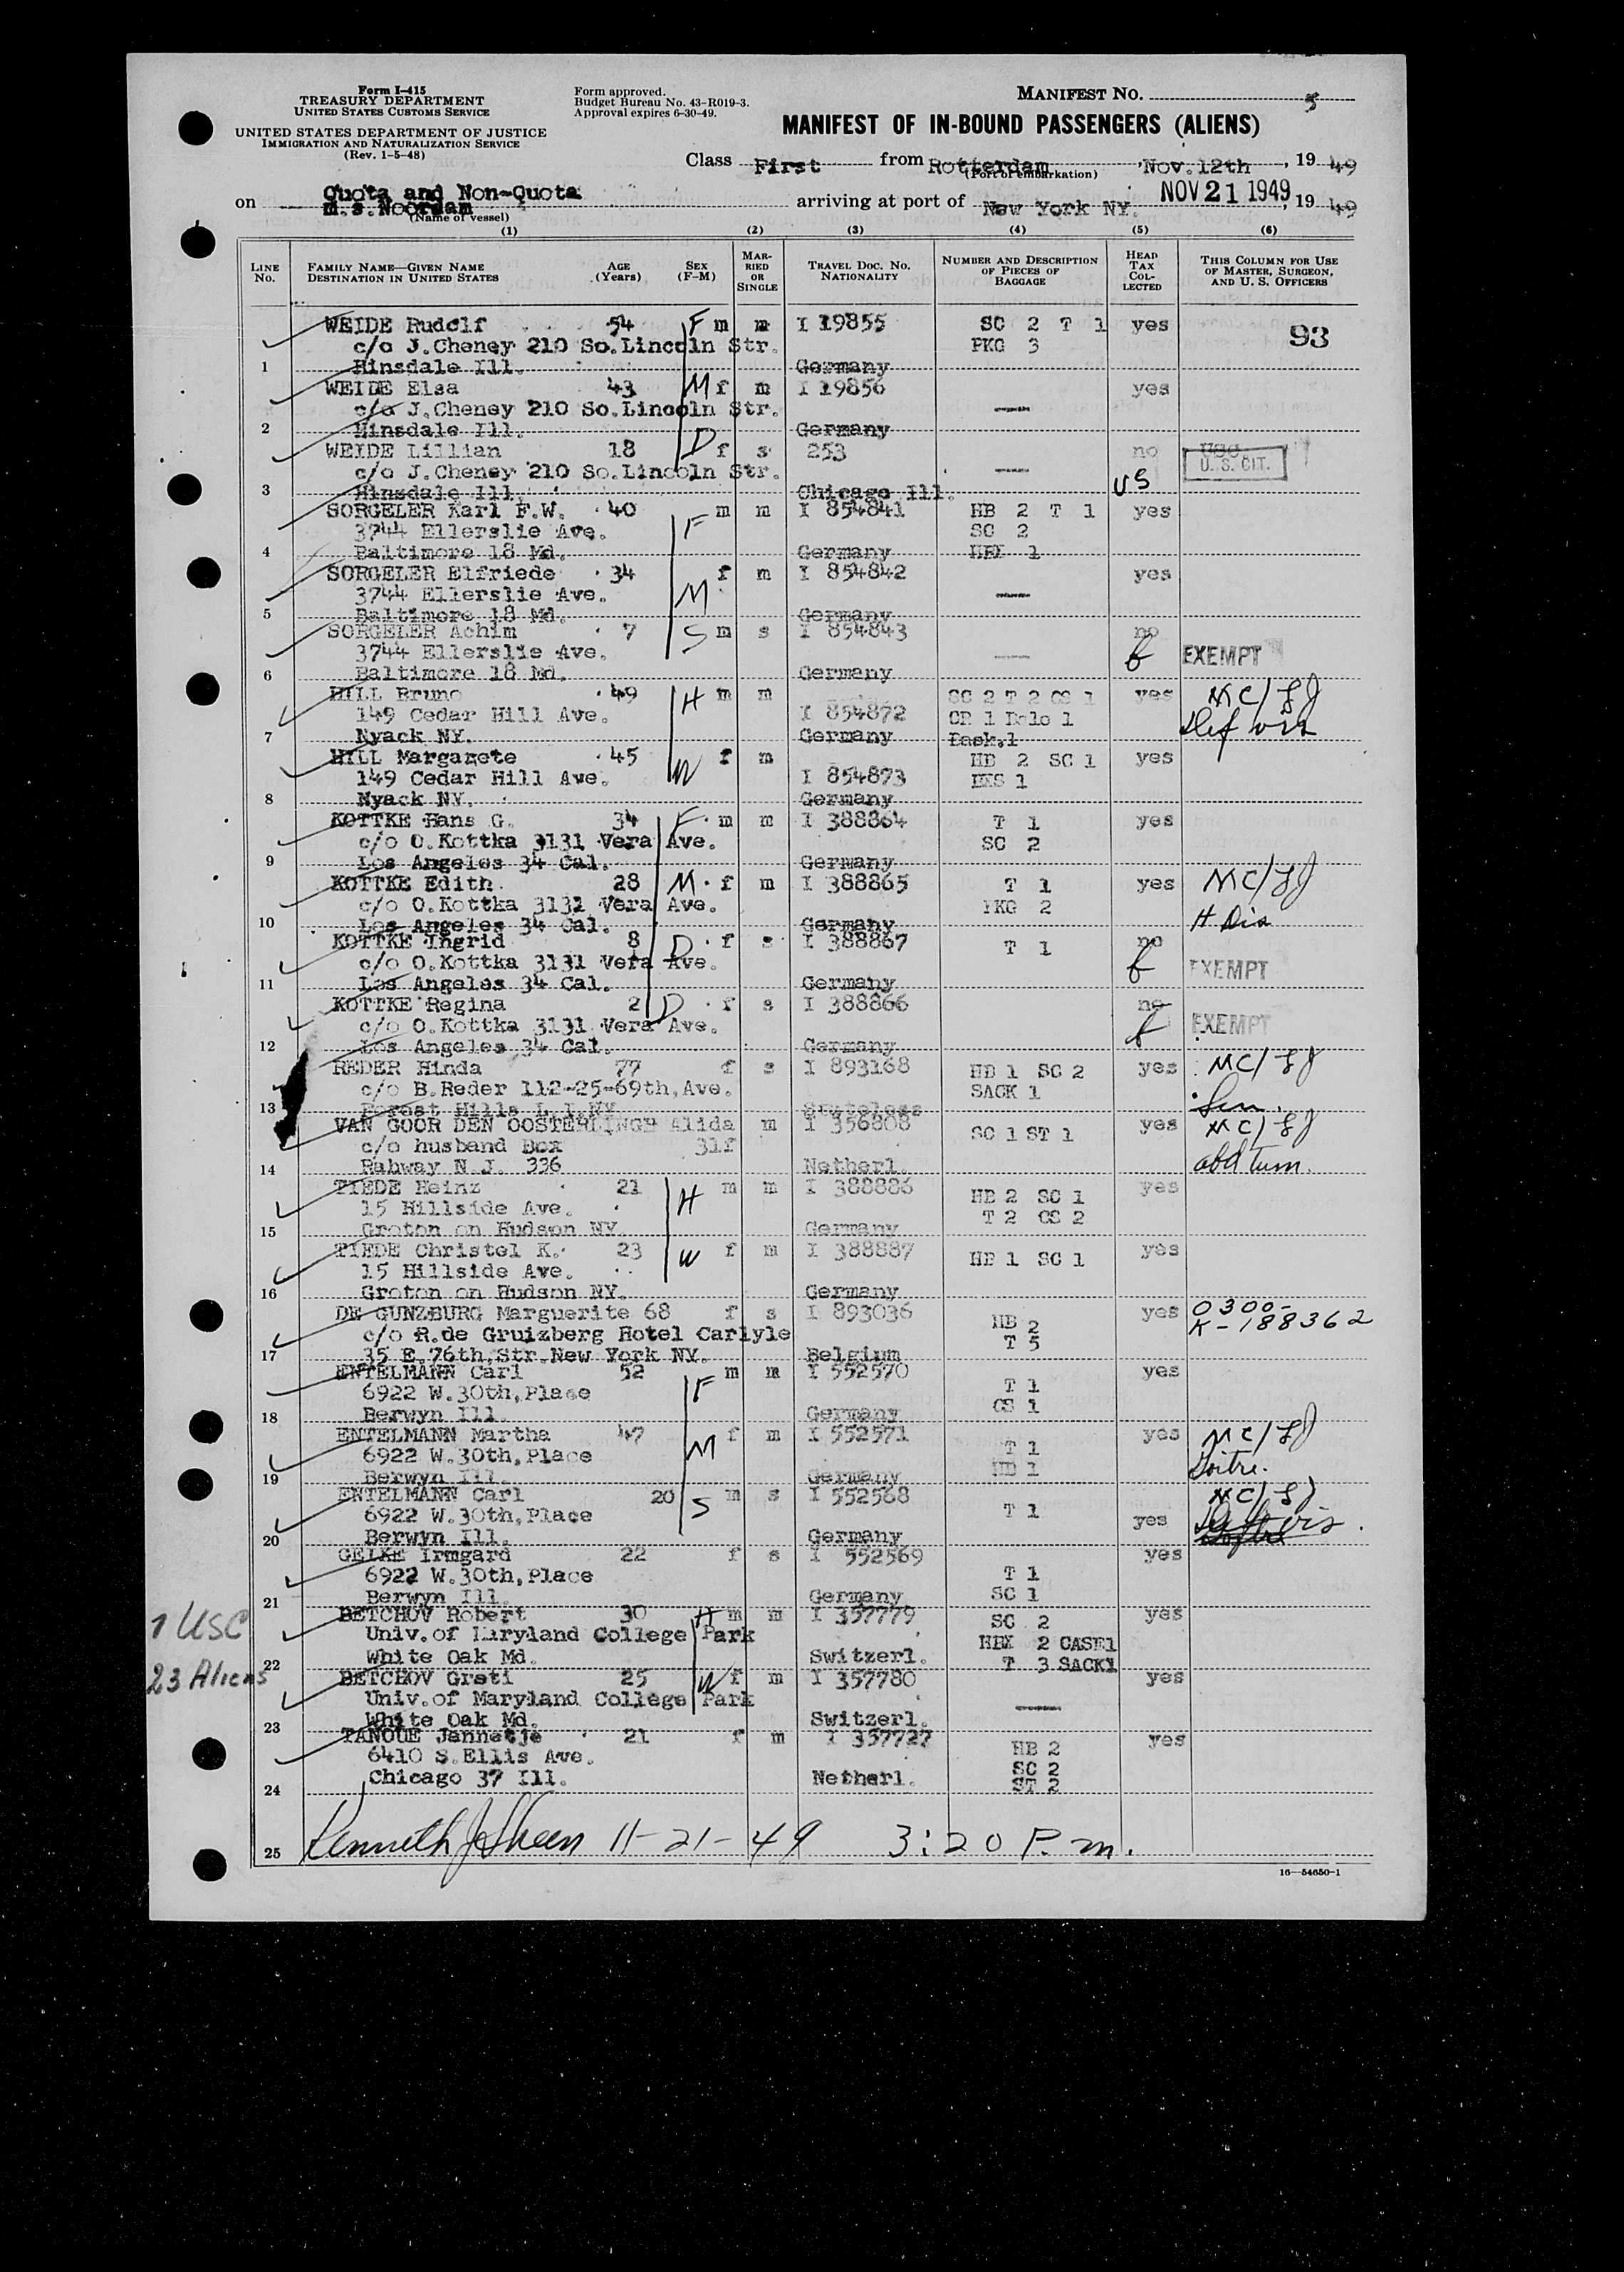 Form I-415
TREASURY DEPARTMENT
UNITED STATES CUSTOMS SERVICE
UNITED STATES DEPARTMENT OF JUSTICE
IMMIGRATION AND NATURALIZATION SERVICE
(Rev. 1-5-48)
Form approved.
Budget Bureau No. 43-R019-3.
Approval expires 6-30-49.
MANIFEST NO. 5
MANIFEST OF IN-BOUND PASSENGERS (ALIENS)
Class First from Rotterdam, Nov. 12th, 19 49
(Port of embarkation)
Quota and Non-Quota
on m.s. Noordam arriving at port of New York NY. NOV 21 1949, 19 49
(Name of vessel)
(1) (2) (3) (4) (5) (6)
LINE No. FAMILY NAME—GIVEN NAME DESTINATION IN UNITED STATES AGE (Years) SEX (F-M) MARRIED OR SINGLE TRAVEL DOC. NO. NATIONALITY NUMBER AND DESCRIPTION OF PIECES OF BAGGAGE HEAD TAX COLLECTED THIS COLUMN FOR USE OF MASTER, SURGEON, AND U. S. OFFICERS
WEIDE Rudolf 54 F m m I 19855 SC 2 T 1 yes 93
c/o J.Cheney 210 So.Lincoln Str. PKG 3
1 Hinsdale Ill. Germany
WEIDE Elsa 43 M f m I 19856 yes
c/o J.Cheney 210 So.Lincoln Str. —
2 Hinsdale Ill. Germany
WEIDE Lillian 18 D f s 253 no USC
c/o J.Cheney 210 So.Lincoln Str. — U. S. CIT.
3 Hinsdale Ill. Chicago Ill. US
SORGELER Karl F.W. 40 F m m I 854841 HB 2 T 1 yes
3744 Ellerslie Ave. SC 2
4 Baltimore 18 Md. Germany 1
SORGELER Elfriede 34 f m I 854842 yes
3744 Ellerslie Ave. M —
5 Baltimore 18 Md. Germany
SORGELER Achim 7 S m s I 854843 no
3744 Ellerslie Ave. — EXEMPT
6 Baltimore 18 Md. Germany
HILL Bruno 49 H m m SC 2 T 2 CS 1 yes MC/
149 Cedar Hill Ave. I 854872 CR 1 1 Def vis
7 Nyack NY. Germany Bask.1
HILL Margarete 45 W f m HB 2 SC 1 yes
149 Cedar Hill Ave. I 854873 1
8 Nyack NY. Germany
KOTTKE Hans G. 34 F m m I 388864 T 1 yes
c/o O.Kottka 3131 Vera Ave. SC 2
9 Los Angeles 34 Cal. Germany
KOTTKE Edith 28 M f m I 388865 T 1 yes MC/
c/o O.Kottka 3131 Vera Ave. PKG 2
10 Los Angeles 34 Cal. Germany H Dis
KOTTKE Ingrid 8 D f s I 388867 T 1 no
c/o O.Kottka 3131 Vera Ave. EXEMPT
11 Los Angeles 34 Cal. Germany
KOTTKE Regina 2 D f s I 388866 no
c/o O.Kottka 3131 Vera Ave. EXEMPT
12 Los Angeles 34 Cal. Germany
REDER Hinda 77 f s I 893168 HB 1 SC 2 yes MC/
c/o B.Reder 112-25-69th,Ave. SACK 1
13 Forest Hills L.I.NY Stateless Sen.
VAN GOOR DEN OOSTERLINGH Alida m I 356808 SC 1 ST 1 yes MC/
c/o husband Box 31f
14 Rahway N.J. 336 Netherl. abd tum.
TIEDE Heinz 21 H m m I 388886 HB 2 SC 1 yes
15 Hillside Ave. T 2 CS 2
15 Groton on Hudson NY. Germany
TIEDE Christel K. 23 W f m I 388887 HB 1 SC 1 yes
15 Hillside Ave.
16 Groton on Hudson NY. Germany
DE GUNZBURG Marguerite 68 f s I 893036 HB 2 yes 0300-
c/o R.de Gruizberg Hotel Carlyle T 5 K-188362
17 35 E.76th,Str.New York NY. Belgium
ENTELMANN Carl 52 F m m I 552570 T 1 yes
6922 W.30th,Place CS 1
18 Berwyn Ill. Germany
ENTELMANN Martha 47 M f m I 552571 T 1 yes MC/
6922 W.30th,Place HB 1 Goitre.
19 Berwyn Ill. Germany
ENTELMANN Carl 20 S m s I 552568 T 1 yes MC/
6922 W.30th,Place Def vis.
20 Berwyn Ill. Germany
GELKE Irmgard 22 f s I 552569 yes
6922 W.30th,Place T 1
21 Berwyn Ill. Germany SC 1
BETCHOV Robert 30 H m m I 357779 SC 2 yes
1 USC Univ.of Maryland College Park HBX 2 CASE1
22 White Oak Md. Switzerl. T 3 SACK1
23 Aliens BETCHOV Greti 25 W f m I 357780 yes
Univ.of Maryland College Park —
23 White Oak Md. Switzerl.
TANOUE Jannetje 21 f m I 357727 HB 2 yes
6410 S.Ellis Ave. SC 2
24 Chicago 37 Ill. Netherl. ST 2
25 Kenneth 11-21-49 3:20 P.m.
16—54650-1